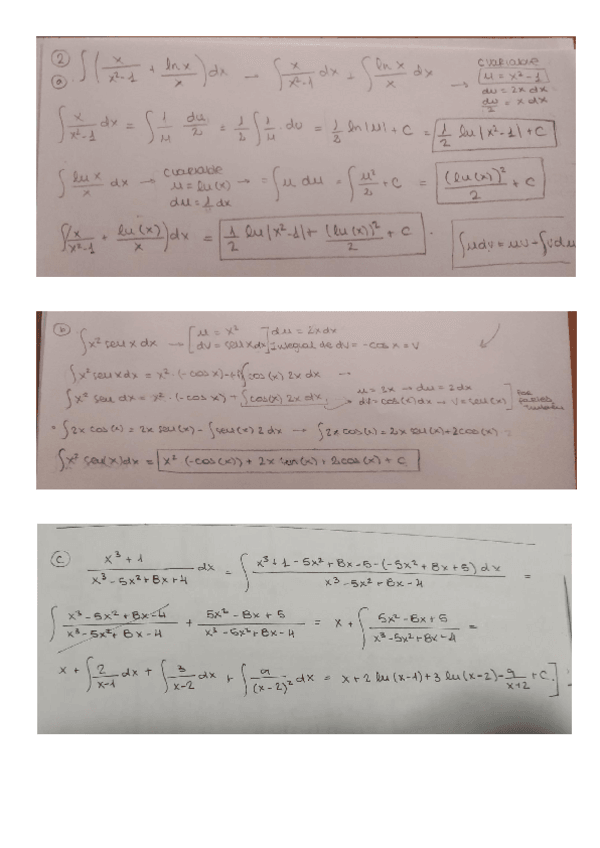 ② ∫(x/(x²-1) + ln x/x) dx → ∫ x/(x²-1) dx + ∫ ln x/x dx → cvariable
ⓐ
u = x²-1
du = 2x dx
du/2 = x dx
∫ x/(x²-1) dx = ∫ 1/u du/2 = 1/2 ∫ 1/u · du = 1/2 ln|u| + C = 1/2 ln|x²-1| + C
∫ ln x/x dx → cvariable u = ln(x) du = 1/x dx → = ∫ u du = ∫ u²/2 + C = (ln(x))²/2 + C
∫(x/(x²-1) + ln(x)/x) dx = 1/2 ln|x²-1| + (ln(x))²/2 + C · ∫udv = uv - ∫vdu
ⓑ ∫x² sen x dx → [u = x² ] du = 2x dx
dv = sen x dx] Integral de dv = -cos x = v
∫x² sen x dx = x² · (-cos x) + ∫ cos(x) 2x dx →
∫x² sen dx = x² · (-cos x) + ∫ cos(x) 2x dx → u = 2x → du = 2dx
dv = cos(x) dx → v = sen(x) Por partes también
· ∫2x cos(x) = 2x sen(x) - ∫sen(x) 2 dx → ∫2x cos(x) = 2x sen(x) + 2cos(x)
∫x² sen(x) dx = x² (-cos(x)) + 2x sen(x) + 2cos(x) + C
ⓒ x³ + 1/(x³ - 5x² + 8x + 4) dx = ∫ x³ + 1 - 5x² + 8x - 5 - (-5x² + 8x + 5) dx/(x³ - 5x² + 8x - 4) =
∫ x³ - 5x² + 8x - 4/(x³ - 5x² + 8x - 4) + 5x² - 8x + 5/(x³ - 5x² + 8x - 4) = x + ∫ 5x² - 8x + 5/(x³ - 5x² + 8x - 4) =
x + ∫ 2/(x-1) dx + ∫ 3/(x-2) dx + ∫ 9/(x-2)² dx = x + 2 ln(x-1) + 3 ln(x-2) - 9/(x+2) + C.]